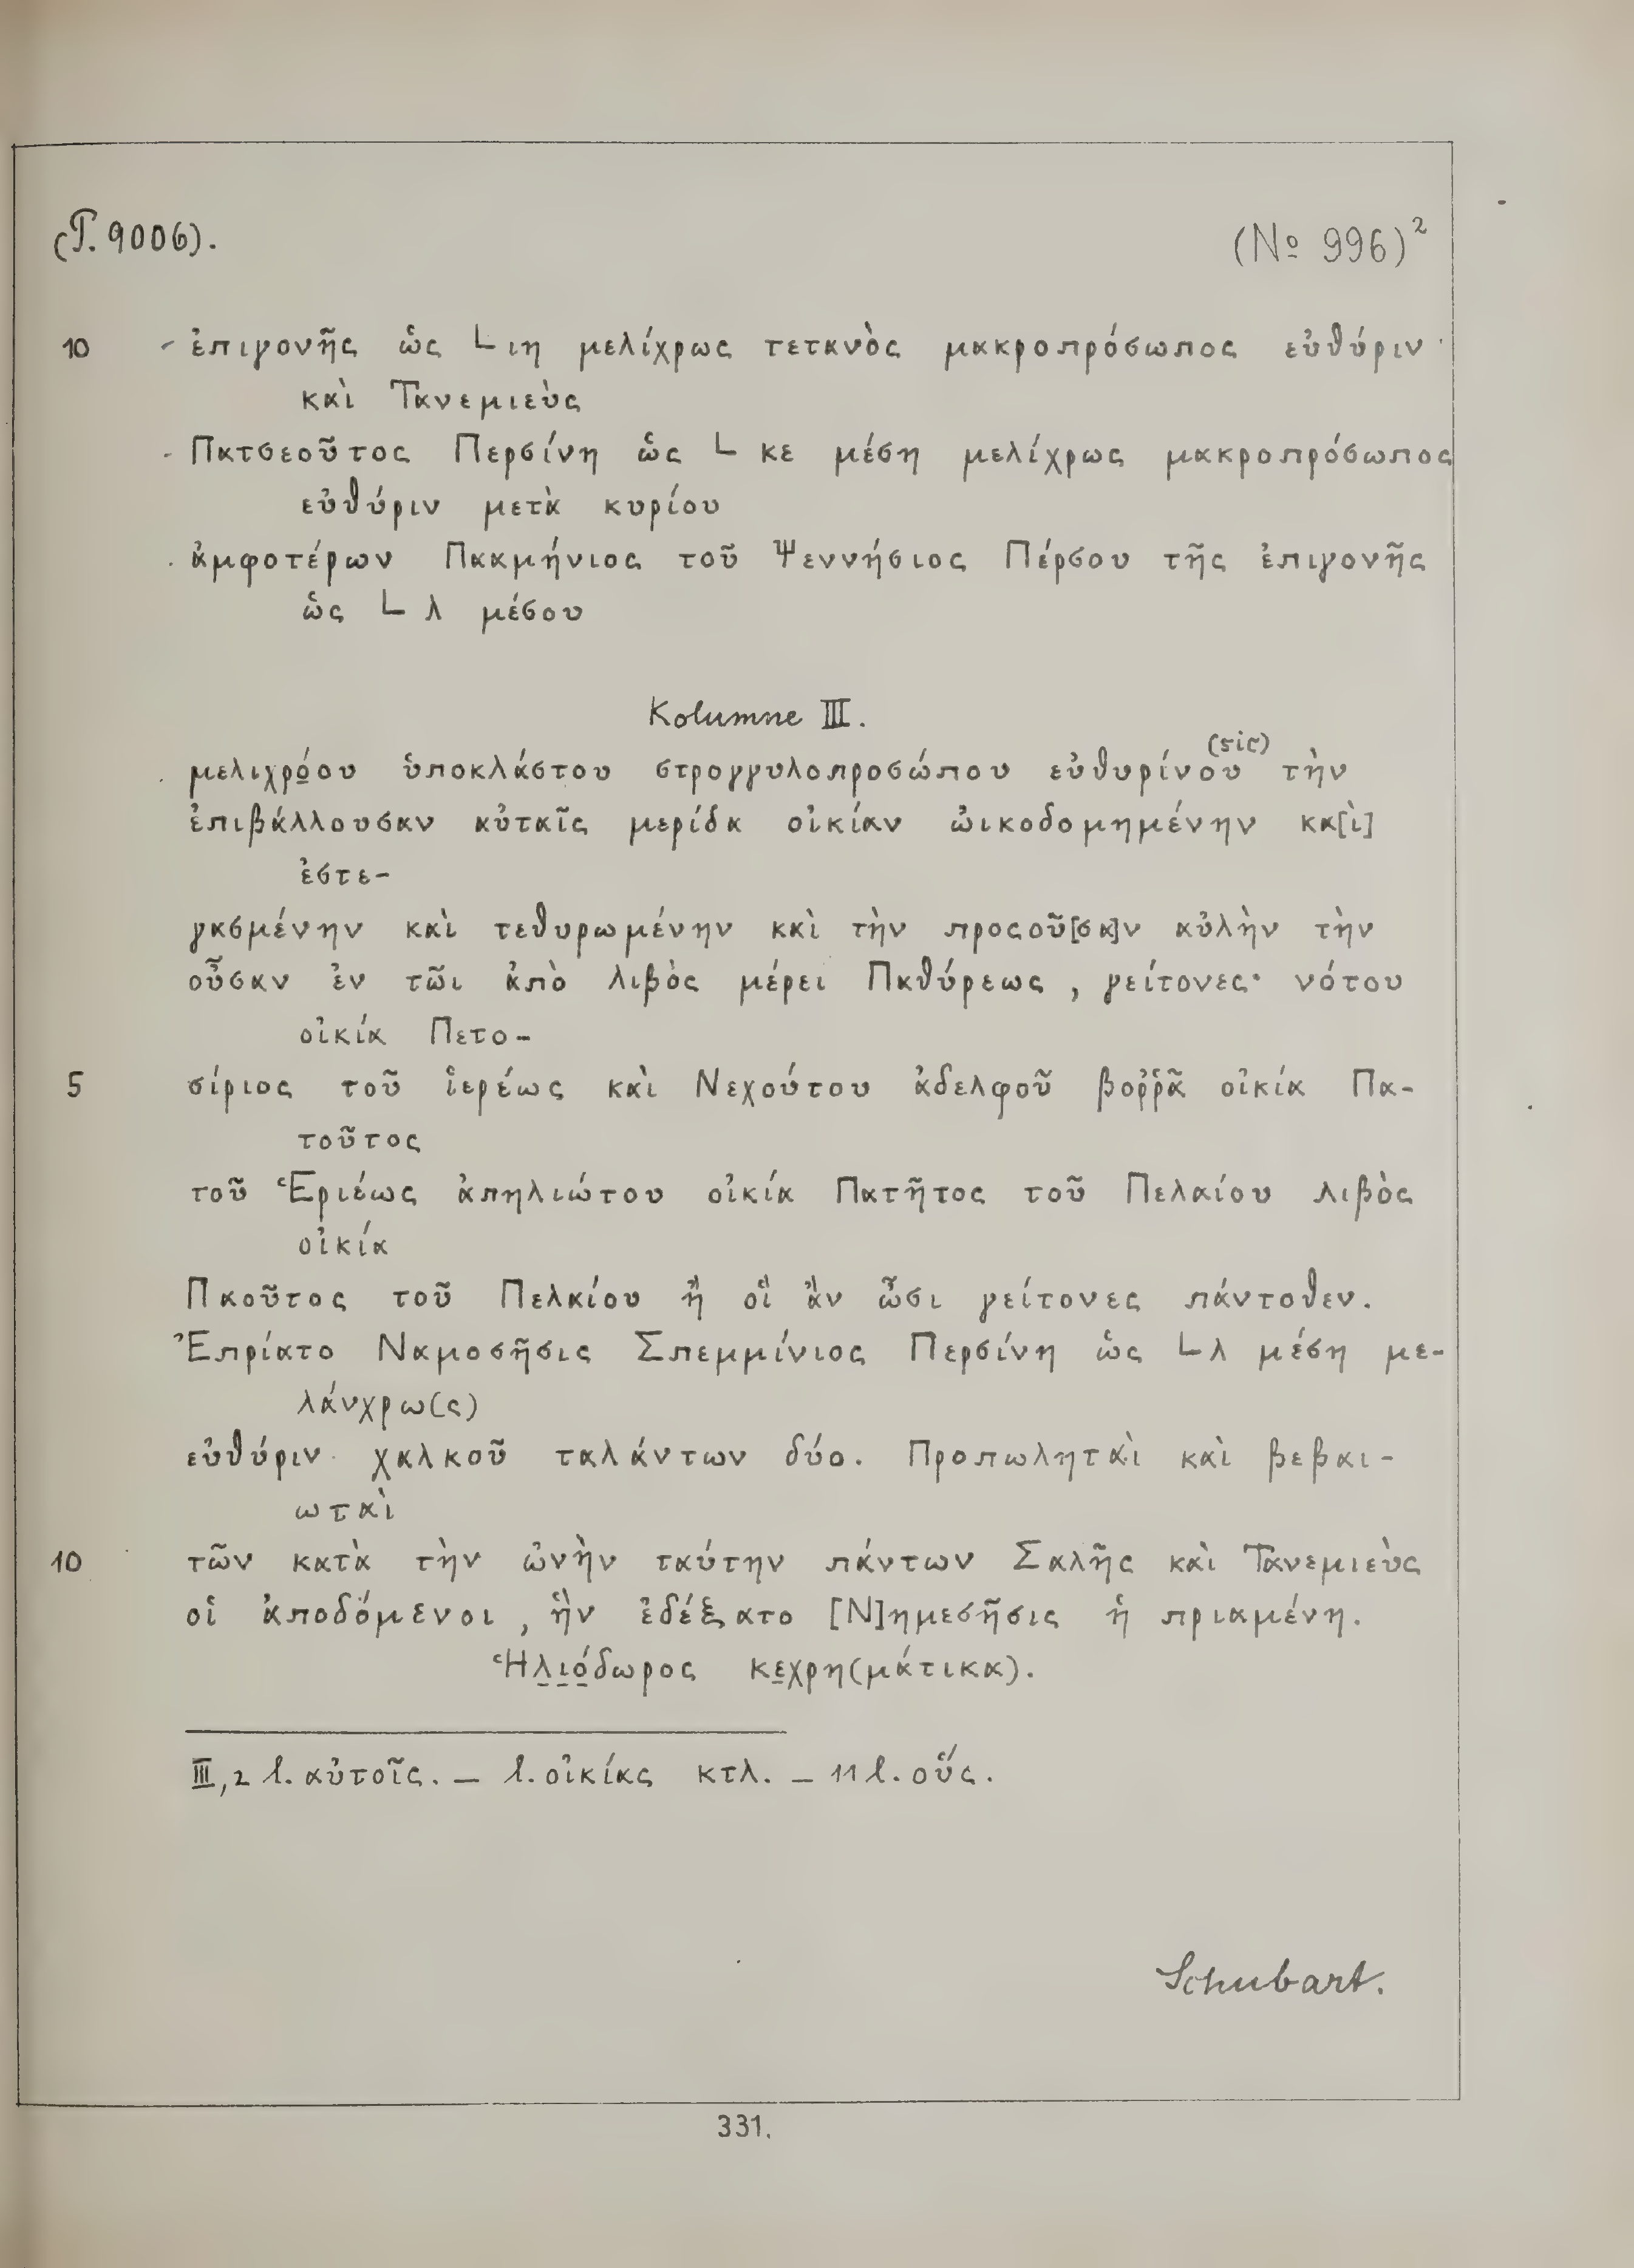 (P. 9006). (No 996)²
10 ἐπιγονῆς ὡς └ ιη μελίχρως τετανὸς μακροπρόσωπος εὐθύριν
καὶ Τανεμιεὺς
Πατσεοῦτος Περσίνη ὡς └ κε μέση μελίχρως μακροπρόσωπος
εὐθύριν μετὰ κυρίου
ἀμφοτέρων Πακμήνιος τοῦ Ψεννήσιος Πέρσου τῆς ἐπιγονῆς
ὡς └ λ μέσου
Kolumne III.
(sic)
μελιχρό̣ου ὑποκλάστου στρογγυλοπροσώπου εὐθυρίνου τὴν
ἐπιβάλλουσαν αὐταῖς μερίδα οἰκίαν ὠικοδομημένην κα[ὶ]
ἐστε-
γασμένην καὶ τεθυρωμένην καὶ τὴν προςοῦ[σα]ν αὐλὴν τὴν
οὖσαν ἐν τῶι ἀπὸ λιβὸς μέρει Παθύρεως, γείτονες· νότου
οἰκία Πετο-
5 σίριος τοῦ ἱερέως καὶ Νεχούτου ἀδελφοῦ βοῤῥᾶ οἰκία Πα-
τοῦτος
τοῦ Ἑριέως ἀπηλιώτου οἰκία Πατῆτος τοῦ Πελαίου λιβὸς
οἰκία
Παοῦτος τοῦ Πελαίου ἢ οἳ ἂν ὦσι γείτονες πάντοθεν.
Ἐπρίατο Ναμοσῆσις Σπεμμίνιος Περσίνη ὡς └ λ μέση με-
λάνχρω(ς)
εὐθύριν χαλκοῦ ταλάντων δύο. Προπωληταὶ καὶ βεβαι-
ωταὶ
10 τῶν κατὰ τὴν ὠνὴν ταύτην πάντων Σαλῆς καὶ Τανεμιεὺς
οἱ ἀποδόμενοι, ἣν ἐδέξατο [Ν]ημεσῆσις ἡ πριαμένη.
Ἡλ̣ι̣ό̣δωρος κε̣χρη(μάτικα).
III, 2 l. αὐτοῖς. — l. οἰκίας κτλ. — 11 l. οὕς.
Schubart.
331.